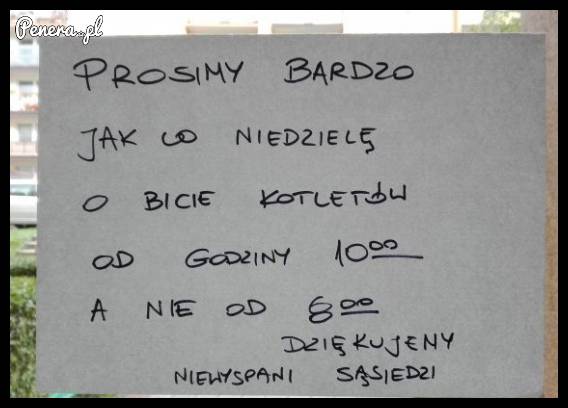 Penera.pl
PROSIMY BARDZO
JAK CO NIEDZIELĘ
O BICIE KOTLETÓW
OD GODZINY 10⁰⁰
A NIE OD 8⁰⁰
DZIĘKUJEMY
NIEWYSPANI SĄSIEDZI